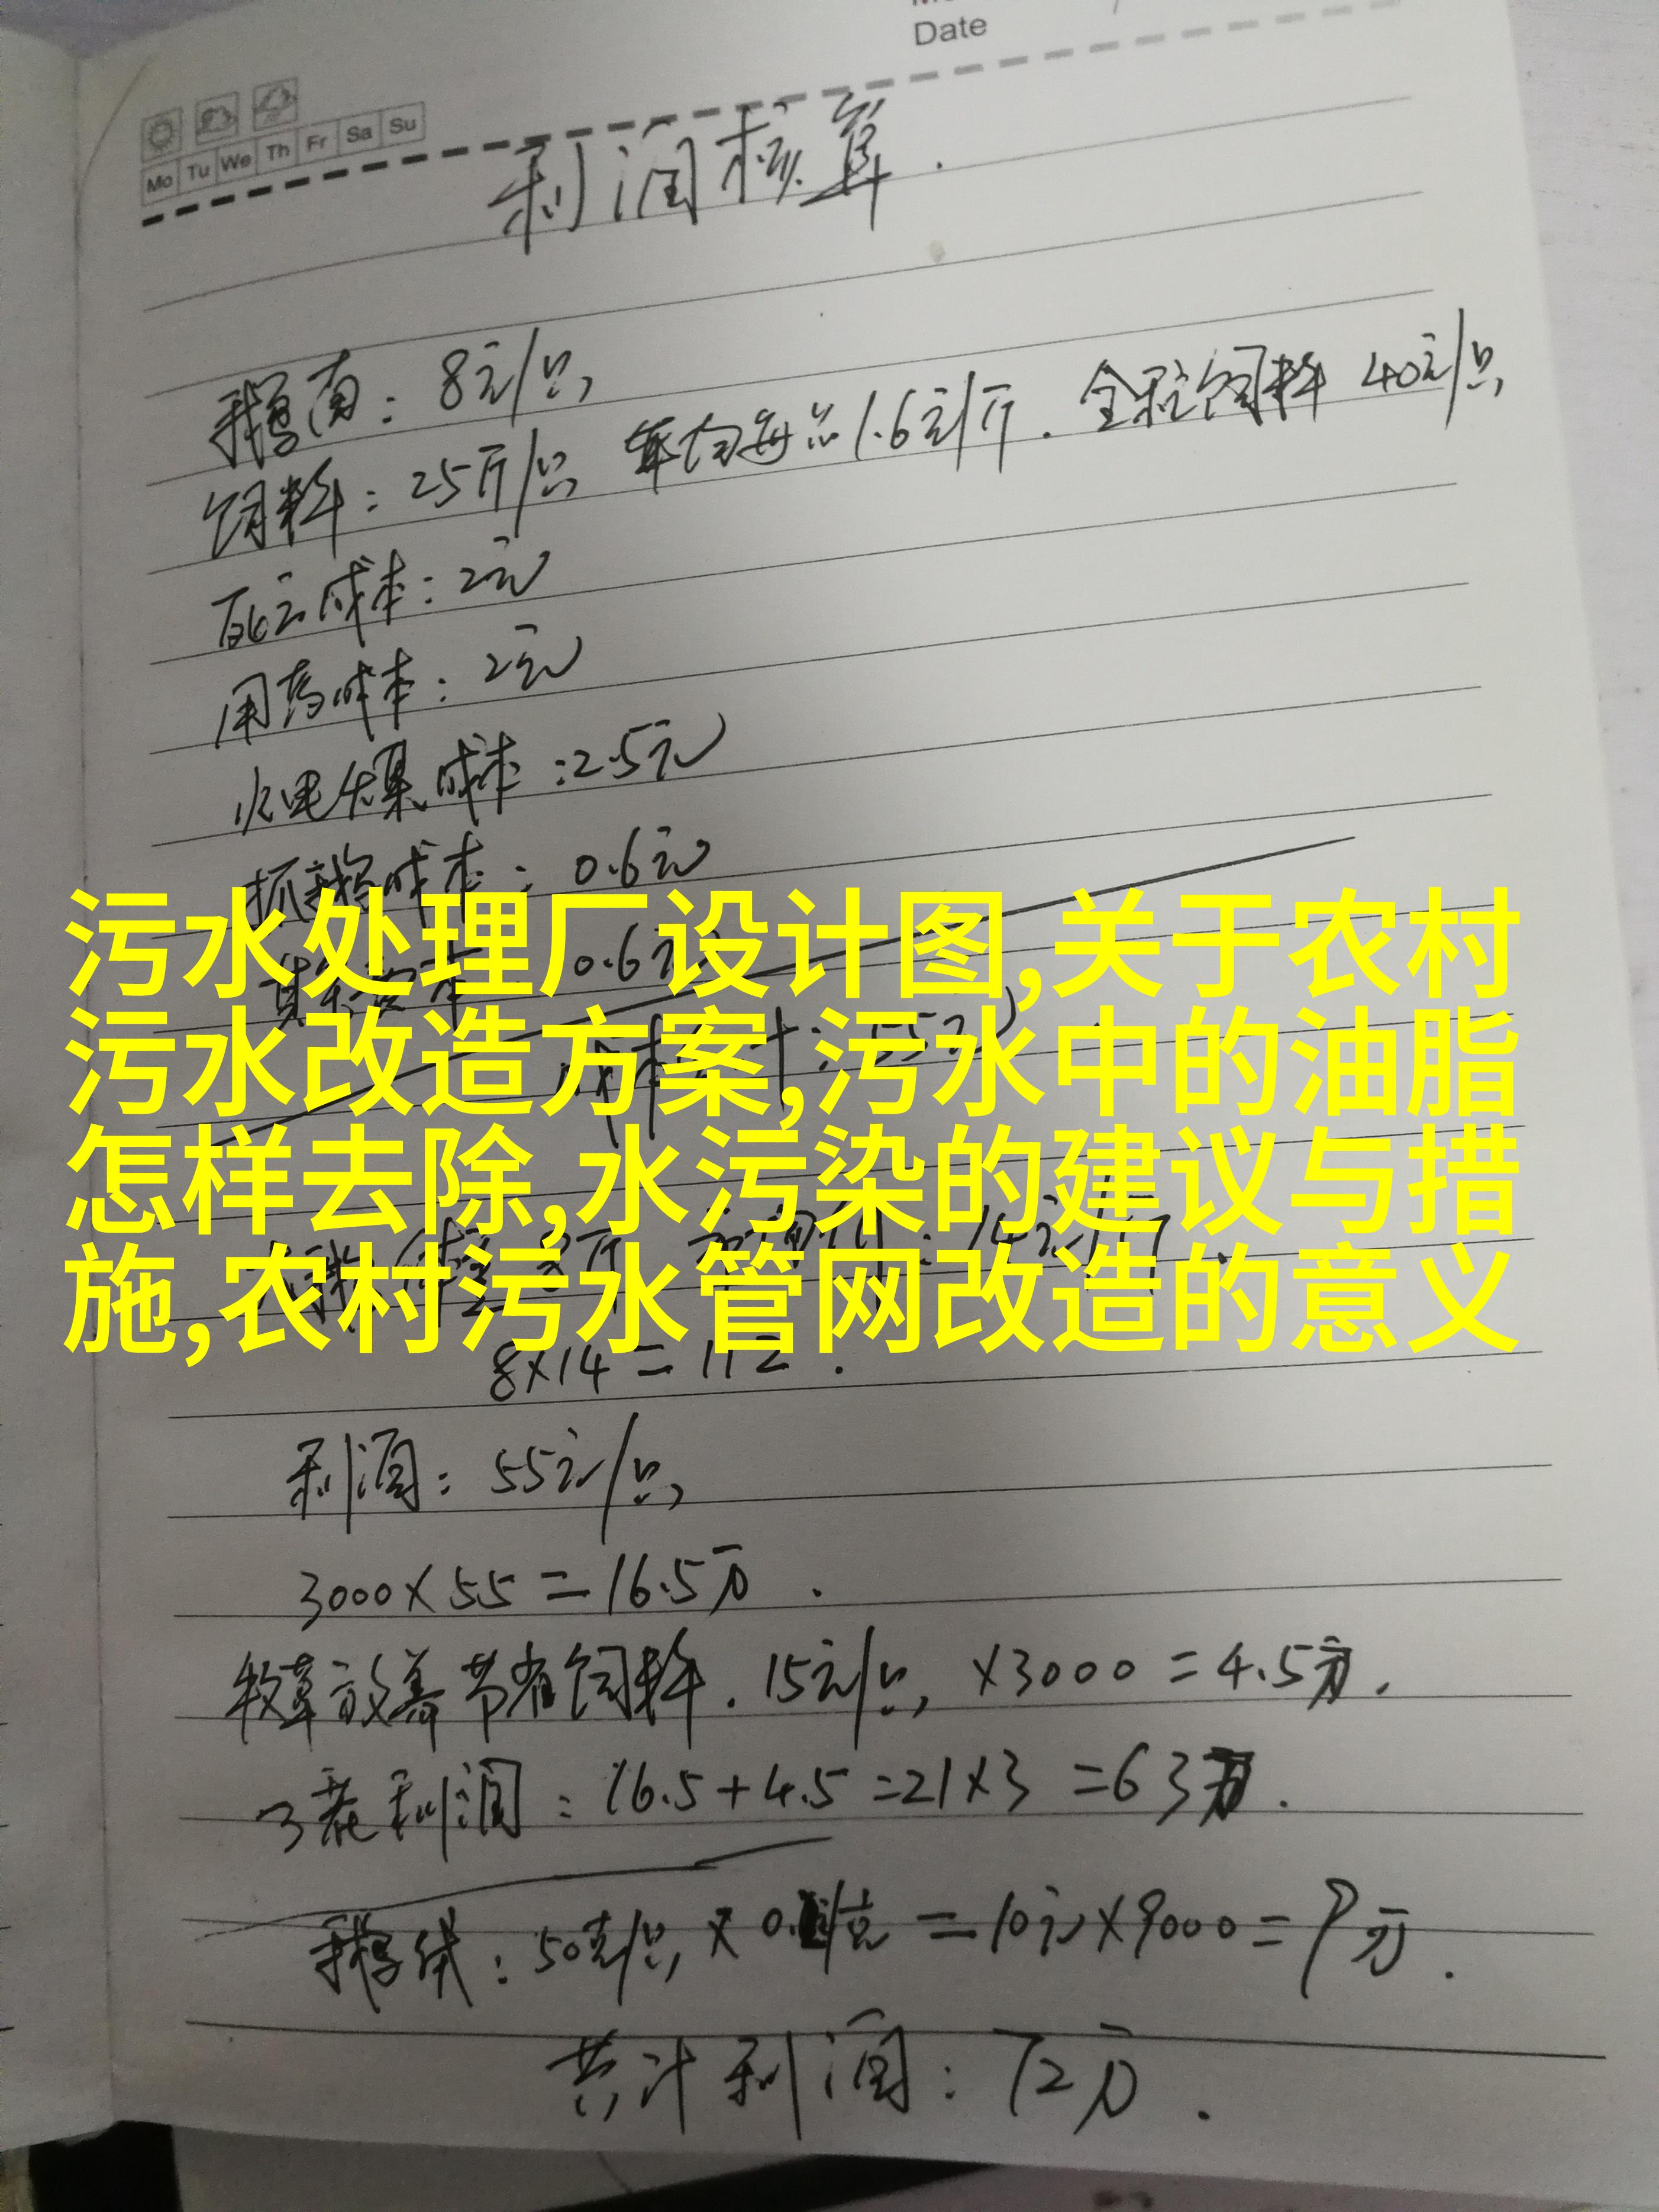 Date
Mo Tu We Th Fr Sa Su
利润核算.
鹅苗:8元/只
饲料:25斤/只 年均每斤1.6元/斤.全程饲料 40元/只
死亡成本:2元
用药成本:2元
水电煤成本:2.5元
抓鹅成本:0.6元
0.6元
污水处理厂设计图,关于农村
污水改造方案,污水中的油脂
怎样去除,水污染的建议与措
施,农村污水管网改造的意义
8×14=112.
利润:55元/只
3000×55=16.5万.
牧草放养节省饲料.15元/只,×3000=4.5万.
3茬利润:16.5+4.5=21×3=63万.
鹅绒:50克/只×0.2/克=10元×9000=9万.
共计利润:72万.